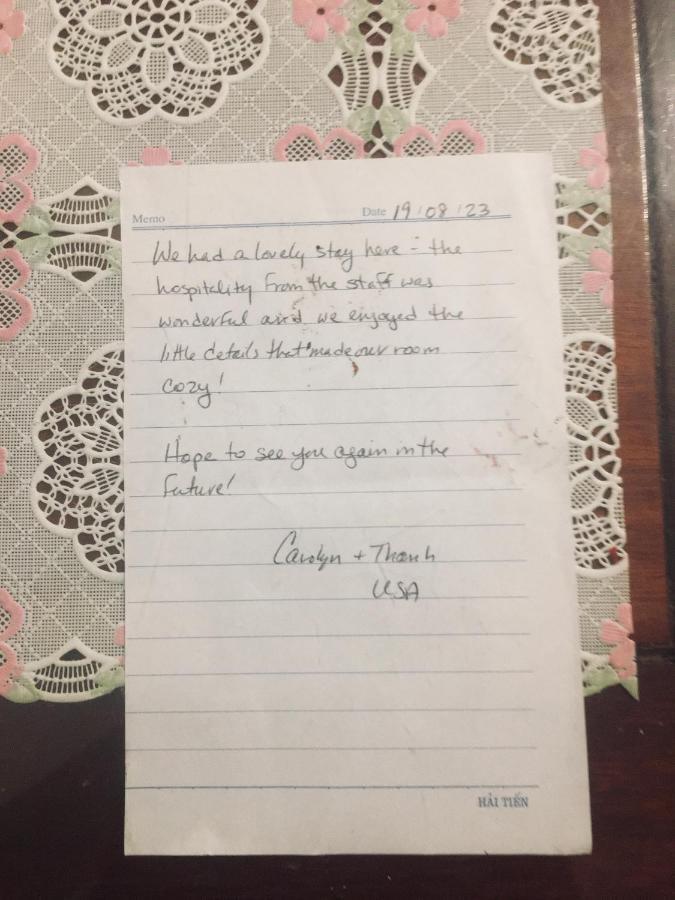 Memo
Date 19/08/23
We had a lovely stay here - the
hospitality from the staff was
wonderful and we enjoyed the
little details that made our room
cozy!
Hope to see you again in the
future!
Carolyn + Thanh
USA
HẢI TIẾN